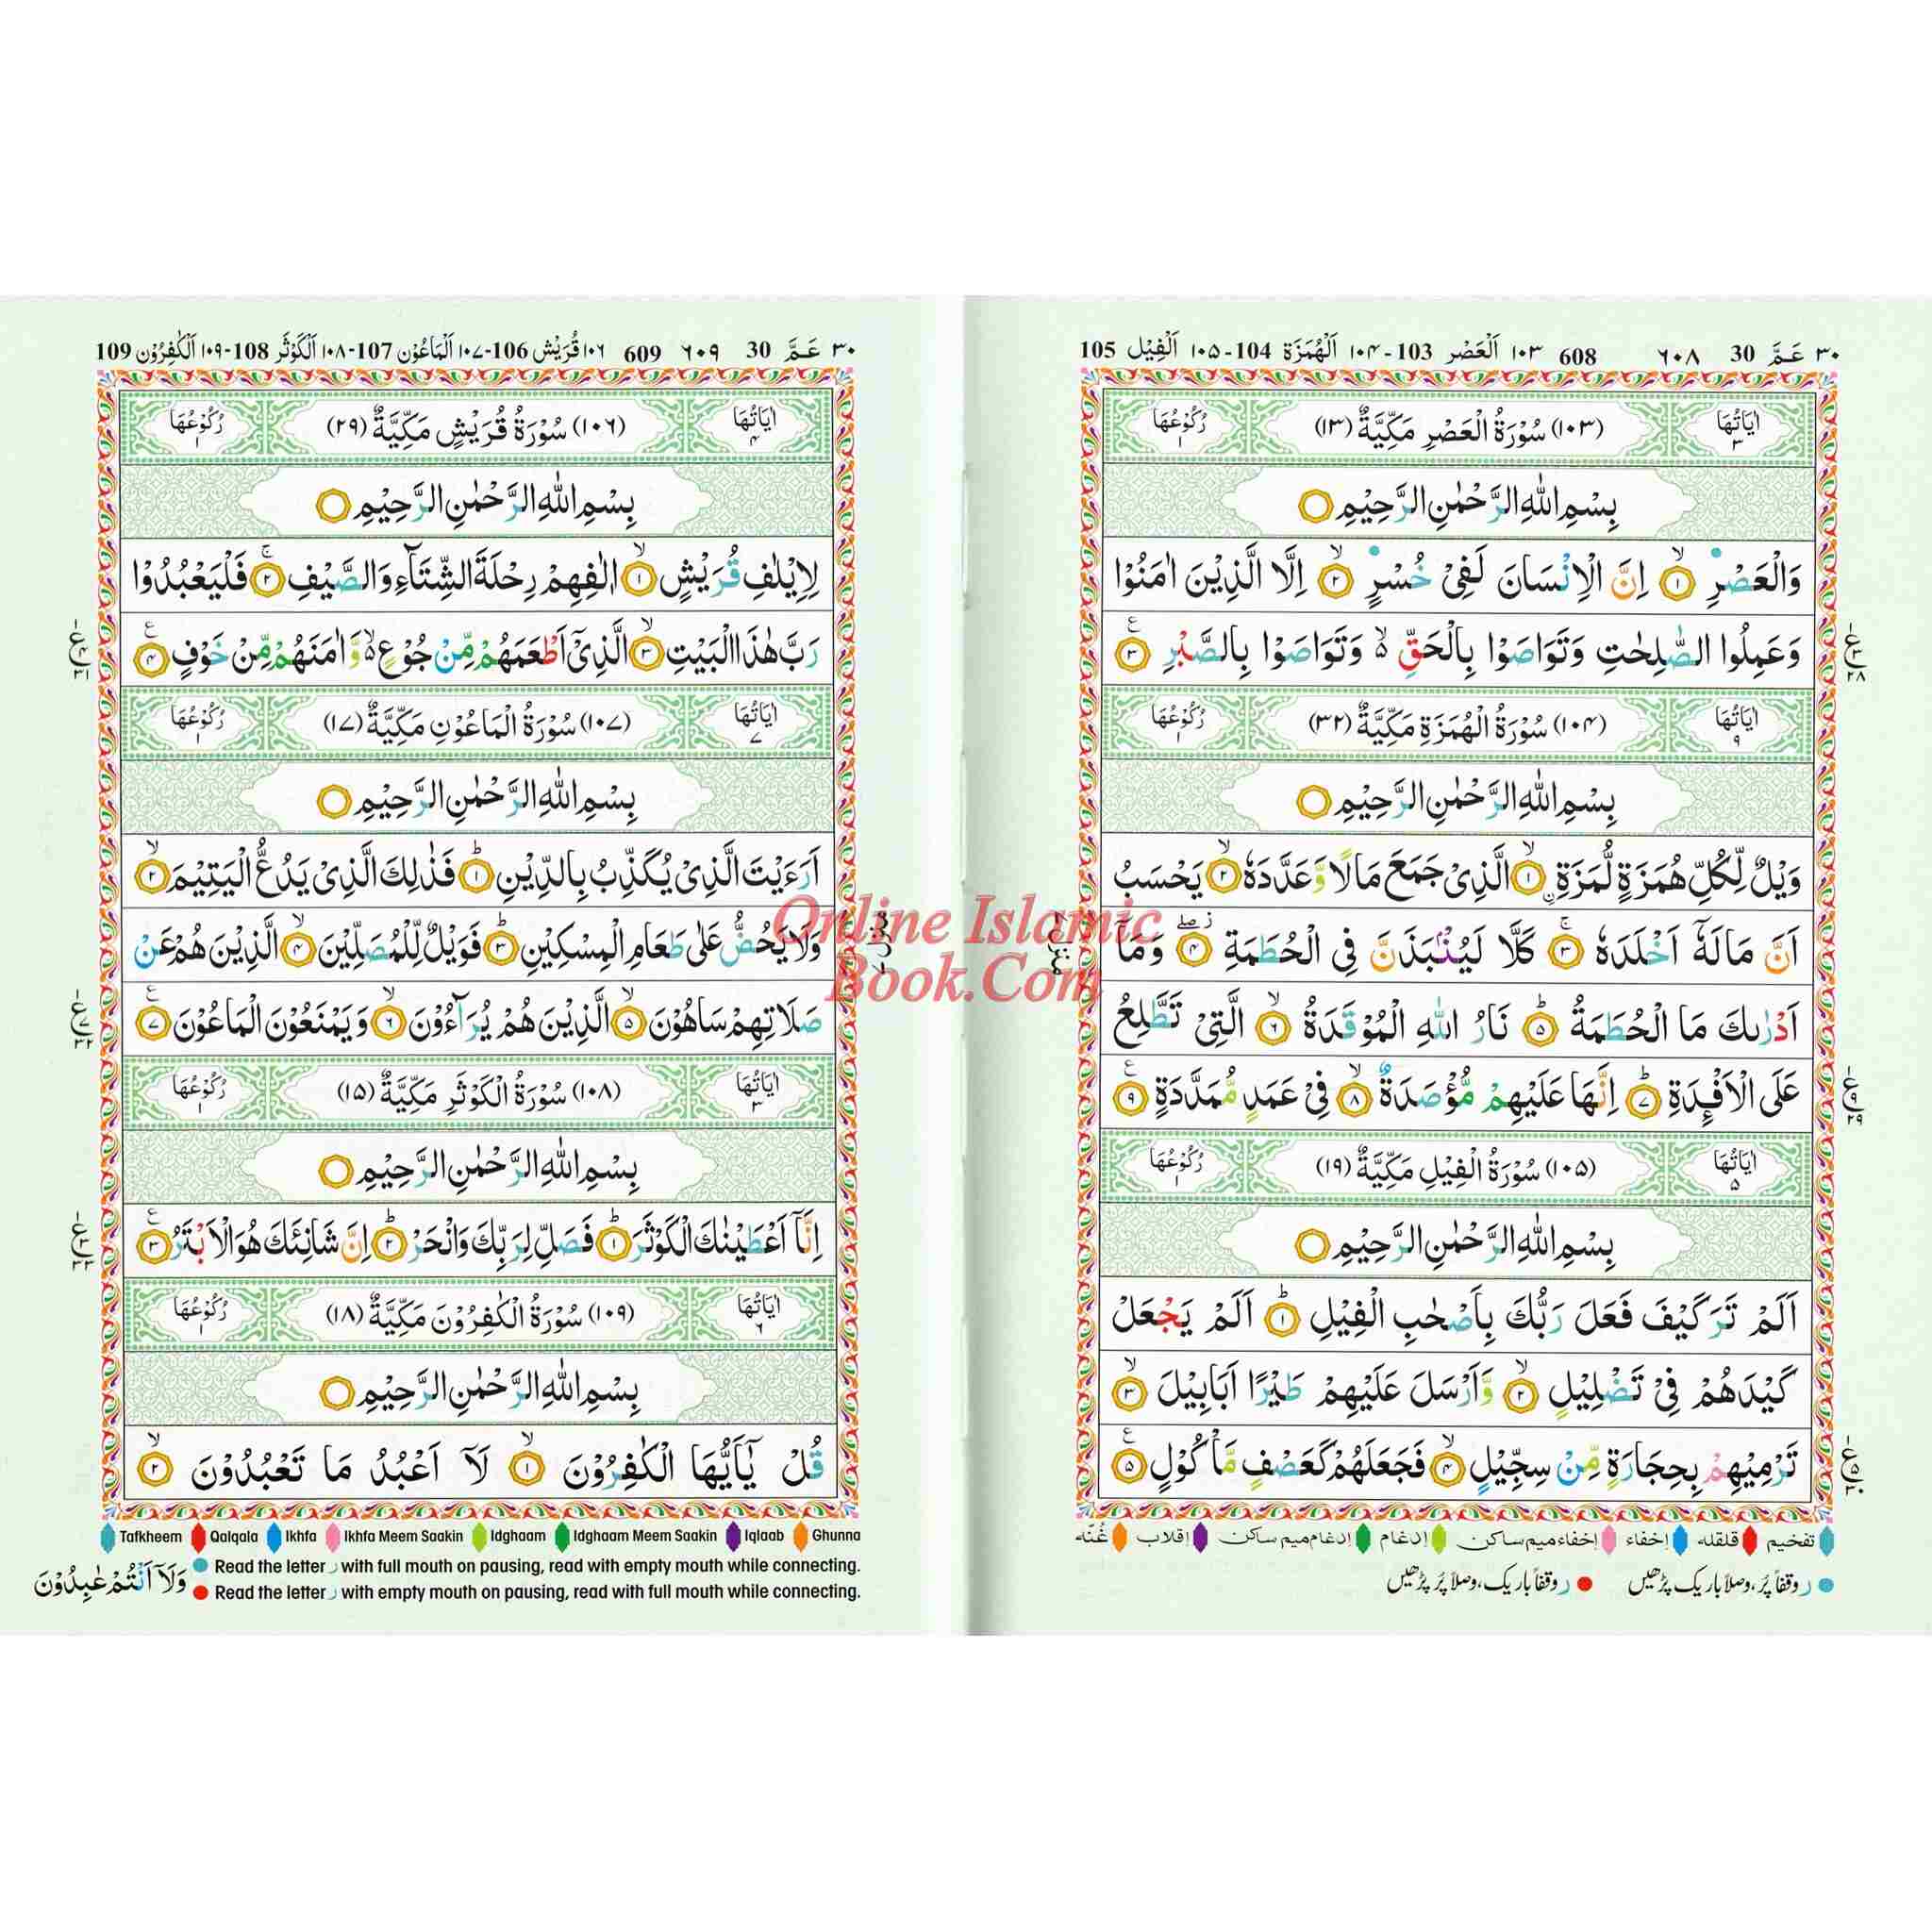 ۳۰ عَـمَّ 30 ۶۰۸ 608 ۱۰۳ اَلْعَصْر 103-۱۰۴ اَلْهُمَزَة 104-۱۰۵ اَلْفِيْل 105
اٰيَاتُهَا ۳ (۱۰۳) سُوْرَةُ الْعَصْرِ مَكِّيَّةٌ (۱۳) رُكُوْعُهَا ۱
بِسْمِ اللّٰهِ الرَّحْمٰنِ الرَّحِيْمِ
وَالْعَصْرِ ۙ۱ اِنَّ الْاِنْسَانَ لَفِيْ خُسْرٍ ۙ۲ اِلَّا الَّذِيْنَ اٰمَنُوْا
وَعَمِلُوا الصّٰلِحٰتِ وَتَوَاصَوْا بِالْحَقِّ ۙ وَتَوَاصَوْا بِالصَّبْرِ ۳ ع
ع ۳ ۲۸
اٰيَاتُهَا ۹ (۱۰۴) سُوْرَةُ الْهُمَزَةِ مَكِّيَّةٌ (۳۲) رُكُوْعُهَا ۱
بِسْمِ اللّٰهِ الرَّحْمٰنِ الرَّحِيْمِ
وَيْلٌ لِّكُلِّ هُمَزَةٍ لُّمَزَةِ ۙ۱ ۨالَّذِيْ جَمَعَ مَالًا وَّعَدَّدَهٗ ۙ۲ يَحْسَبُ
اَنَّ مَالَهٗٓ اَخْلَدَهٗ ۚ۳ كَلَّا لَيُنْۢبَذَنَّ فِي الْحُطَمَةِ ۴ وَمَآ
اَدْرٰىكَ مَا الْحُطَمَةُ ؕ۵ نَارُ اللّٰهِ الْمُوْقَدَةُ ۙ۶ الَّتِيْ تَطَّلِعُ
عَلَى الْاَفْـِٕدَةِ ؕ۷ اِنَّهَا عَلَيْهِمْ مُّؤْصَدَةٌ ۙ۸ فِيْ عَمَدٍ مُّمَدَّدَةٍ ۹ ع
ع ۹ ۲۹
اٰيَاتُهَا ۵ (۱۰۵) سُوْرَةُ الْفِيْلِ مَكِّيَّةٌ (۱۹) رُكُوْعُهَا ۱
بِسْمِ اللّٰهِ الرَّحْمٰنِ الرَّحِيْمِ
اَلَمْ تَرَ كَيْفَ فَعَلَ رَبُّكَ بِاَصْحٰبِ الْفِيْلِ ؕ۱ اَلَمْ يَجْعَلْ
كَيْدَهُمْ فِيْ تَضْلِيْلٍ ۙ۲ وَّاَرْسَلَ عَلَيْهِمْ طَيْرًا اَبَابِيْلَ ۙ۳
تَرْمِيْهِمْ بِحِجَارَةٍ مِّنْ سِجِّيْلٍ ۙ۴ فَجَعَلَهُمْ كَعَصْفٍ مَّاْكُوْلٍ ۵ ع
ع ۵ ۳۰
تفخیم قلقله إخفاء إخفاءمیم‌ساکن إدغام إدغام‌میم‌ساکن إقلاب غُنّه
ر وقفاً پُر، وصلاً باریک پڑھیں ر وقفاً باریک، وصلاً پُر پڑھیں
۳۰ عَـمَّ 30 ۶۰۹ 609 ۱۰۶ قُرَيْش 106-۱۰۷ اَلْمَاعُوْن 107-۱۰۸ اَلْكَوْثَر 108-۱۰۹ اَلْكٰفِرُوْن 109
اٰيَاتُهَا ۴ (۱۰۶) سُوْرَةُ قُرَيْشٍ مَكِّيَّةٌ (۲۹) رُكُوْعُهَا ۱
بِسْمِ اللّٰهِ الرَّحْمٰنِ الرَّحِيْمِ
لِاِيْلٰفِ قُرَيْشٍ ۙ۱ اٖلٰفِهِمْ رِحْلَةَ الشِّتَآءِ وَالصَّيْفِ ۚ۲ فَلْيَعْبُدُوْا
رَبَّ هٰذَا الْبَيْتِ ۙ۳ الَّذِيْٓ اَطْعَمَهُمْ مِّنْ جُوْعٍ ۙ وَّاٰمَنَهُمْ مِّنْ خَوْفٍ ۴ ع
اٰيَاتُهَا ۷ (۱۰۷) سُوْرَةُ الْمَاعُوْنِ مَكِّيَّةٌ (۱۷) رُكُوْعُهَا ۱
بِسْمِ اللّٰهِ الرَّحْمٰنِ الرَّحِيْمِ
اَرَءَيْتَ الَّذِيْ يُكَذِّبُ بِالدِّيْنِ ؕ۱ فَذٰلِكَ الَّذِيْ يَدُعُّ الْيَتِيْمَ ۙ۲
وَلَا يَحُضُّ عَلٰى طَعَامِ الْمِسْكِيْنِ ؕ۳ فَوَيْلٌ لِّلْمُصَلِّيْنَ ۙ۴ الَّذِيْنَ هُمْ عَنْ
صَلَاتِهِمْ سَاهُوْنَ ۙ۵ الَّذِيْنَ هُمْ يُرَآءُوْنَ ۙ۶ وَيَمْنَعُوْنَ الْمَاعُوْنَ ۷ ع
اٰيَاتُهَا ۳ (۱۰۸) سُوْرَةُ الْكَوْثَرِ مَكِّيَّةٌ (۱۵) رُكُوْعُهَا ۱
بِسْمِ اللّٰهِ الرَّحْمٰنِ الرَّحِيْمِ
اِنَّآ اَعْطَيْنٰكَ الْكَوْثَرَ ؕ۱ فَصَلِّ لِرَبِّكَ وَانْحَرْ ؕ۲ اِنَّ شَانِئَكَ هُوَ الْاَبْتَرُ ۳ ع
اٰيَاتُهَا ۶ (۱۰۹) سُوْرَةُ الْكٰفِرُوْنَ مَكِّيَّةٌ (۱۸) رُكُوْعُهَا ۱
بِسْمِ اللّٰهِ الرَّحْمٰنِ الرَّحِيْمِ
قُلْ يٰٓاَيُّهَا الْكٰفِرُوْنَ ۙ۱ لَآ اَعْبُدُ مَا تَعْبُدُوْنَ ۙ۲
Tafkheem Qalqala Ikhfa Ikhfa Meem Saakin Idghaam Idghaam Meem Saakin Iqlaab Ghunna
Read the letter ر with full mouth on pausing, read with empty mouth while connecting.
Read the letter ر with empty mouth on pausing, read with full mouth while connecting.
وَلَآ اَنْتُمْ عٰبِدُوْنَ
Online Islamic
Book.Com